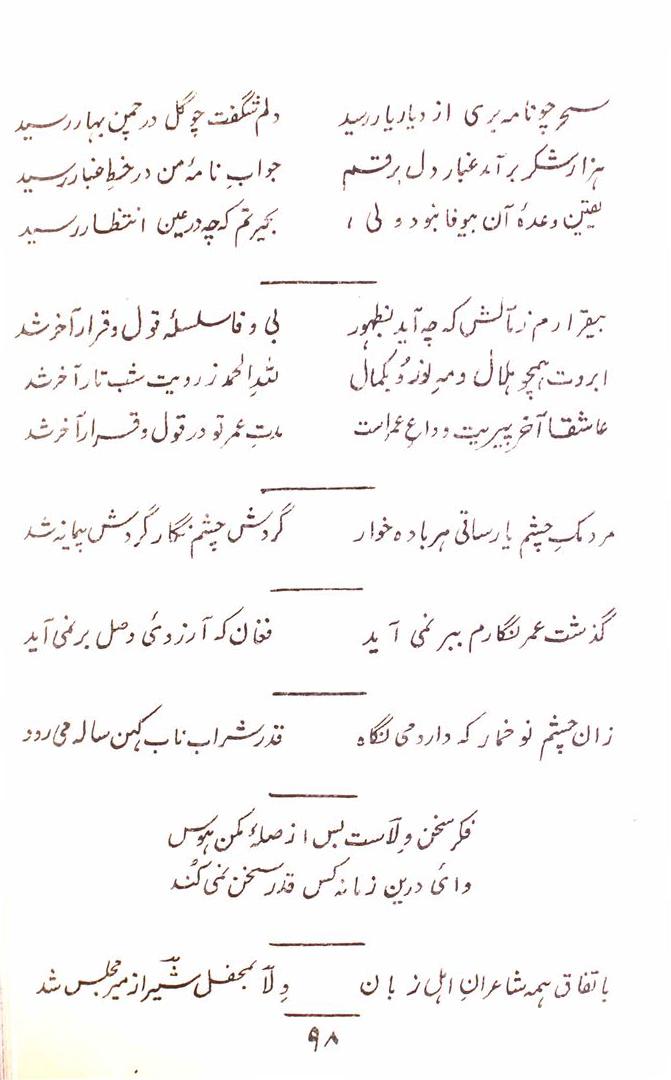 سحر چو نامه بری از دیار یار رسید دلم شگفت چو گل در چمن بهار رسید
هزار شکر برآمد غبار دل برقم جواب نامۂ من در خط غبار رسید
یقین وعدۂ آن بیوفا نبود ولی ، بحیرتم که چه در عین انتظار رسید
بیقرارم ز مآلش که چه آید بظهور بی وفا سلسلۂ قول و قرار آخر شد
ابروت همچو هلال و مه نوز و بکمال للہِ الحمد ز رویت شب تار آخر شد
عاشقا آخر پیریت وداعِ عمر است مدتِ عمر تو در قول و قرار آخر شد
مردمکِ چشم یار ساقی هر باده خوار گردش چشم نگار گردش پیمانه شد
گذشت عمر نگارم ببر نمی آید فغان که آرزوئ وصل بر نمی آید
زان چشم نو خمار که دارد می نگاه قدر شراب ناب کهن ساله می رود
فکر سخن وِلآست بس از صلۂ مکن هوس
وائ درین زمانه کس قدر سخن نمی کُند
باتفاق همه شاعرانِ اهل زبان وِلآ بمحفل شیراز میر مجلس شد
۹۸